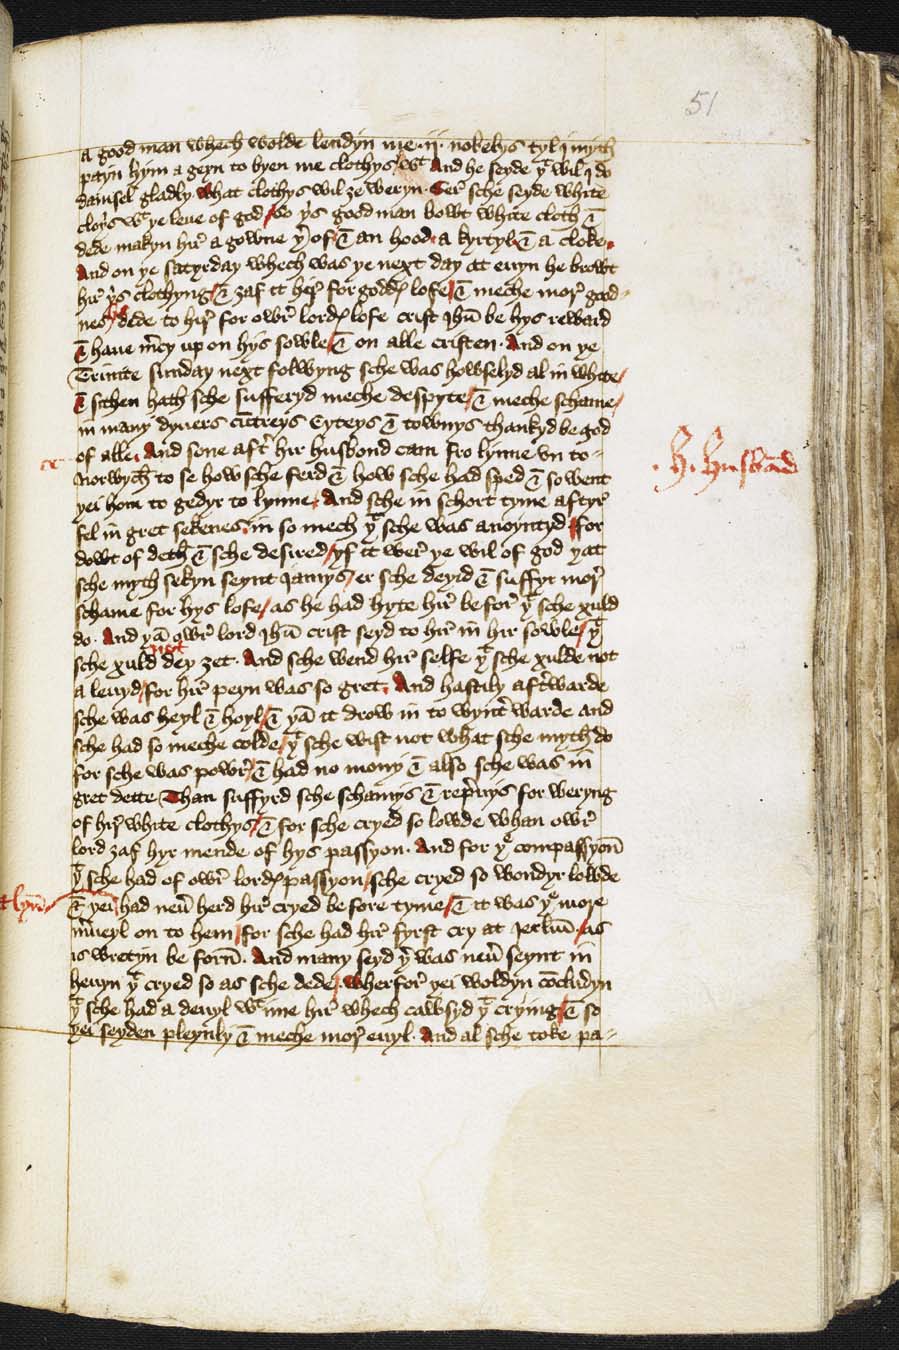 51
a good man whech wolde lendyn me .ij. nobelys tyl I myth
payn hym a geyn to byen me clothys wt And he seyde yt wil I do
damsel gladly what clothys wil ȝe weryn . Ser sche seyde white
cloþs wt ye leue of god / So ys good man bowt white cloth &
dede makyn hir a gowne yr of / & an hood / a kyrtyl / & a cloke .
And on ye satyrday whech was ye next day at euyn he browt
hir ys clothyng / & ȝaf it hir for goddys lofe / & meche mor good-
nes / he dede to hir for owr lordys lofe crist Ihu be hys reward
& haue mcy up on hys sowle / & on alle cristen . And on ye
Trinite sunday next folwyng sche was howselyd al in white /
& sithen hath sche sufferyd meche despyte / & meche schame /
in many dyuers cuntreys Cyteys & townys thankyd be god
of alle . And sone aftr hir husbond cam fro lynne vn to -
Norwych to se how sche ferd & how sche had sped & so went
.H. Husbād
yei hom to gedyr to lynne . And sche in schort tyme aftyr
fel in gret sekenes . in so mech yt sche was anoyntyd / for
dowt of deth & sche desired / yf it wer ye wil of god yat
sche myth sekyn seynt Jamys / er sche deyid & suffyr mor
schame for hys lofe / as he had hyte hir befor yt sche xuld
do . And yā owr lord Ihu crist seyd to hir in hir sowle / yt
sche xuld not dey ȝet . And sche wend hir selfe yt sche xulde not
a leuyd / for hir peyn was so gret . And hastily aftrwarde
sche was heyl & hoyl / & yā it drow in to wyntr warde and
sche had so meche colde / yt sche wist not what sche myth do
for sche was powr / & had no mony & also sche was in
gret dette Than suffyrd sche schamys & repreuys for weryng
of hir white clothys / & for sche cryed so lowde whan owr
lord ȝaf hyr mende of hys passyon . And for ye compassyon
yt sche had of owr lordys passyon / sche cryed so wondyr lowde
& yei had neur herd hir cryed be fore tyme / & it was ye more
merueyl on to hem / for sche had hir fyrst cry at Jerlm . as
is wretyn be forn . And many seyd yr was neur seynt in
heuyn yt cryed so as sche dede / wherfor yei woldyn cōcludyn
yt sche had a deuyl wt inne hir whech cawsyd yt crying / & so
yei seyden pleynly & meche mor euyl . And al sche toke pa-